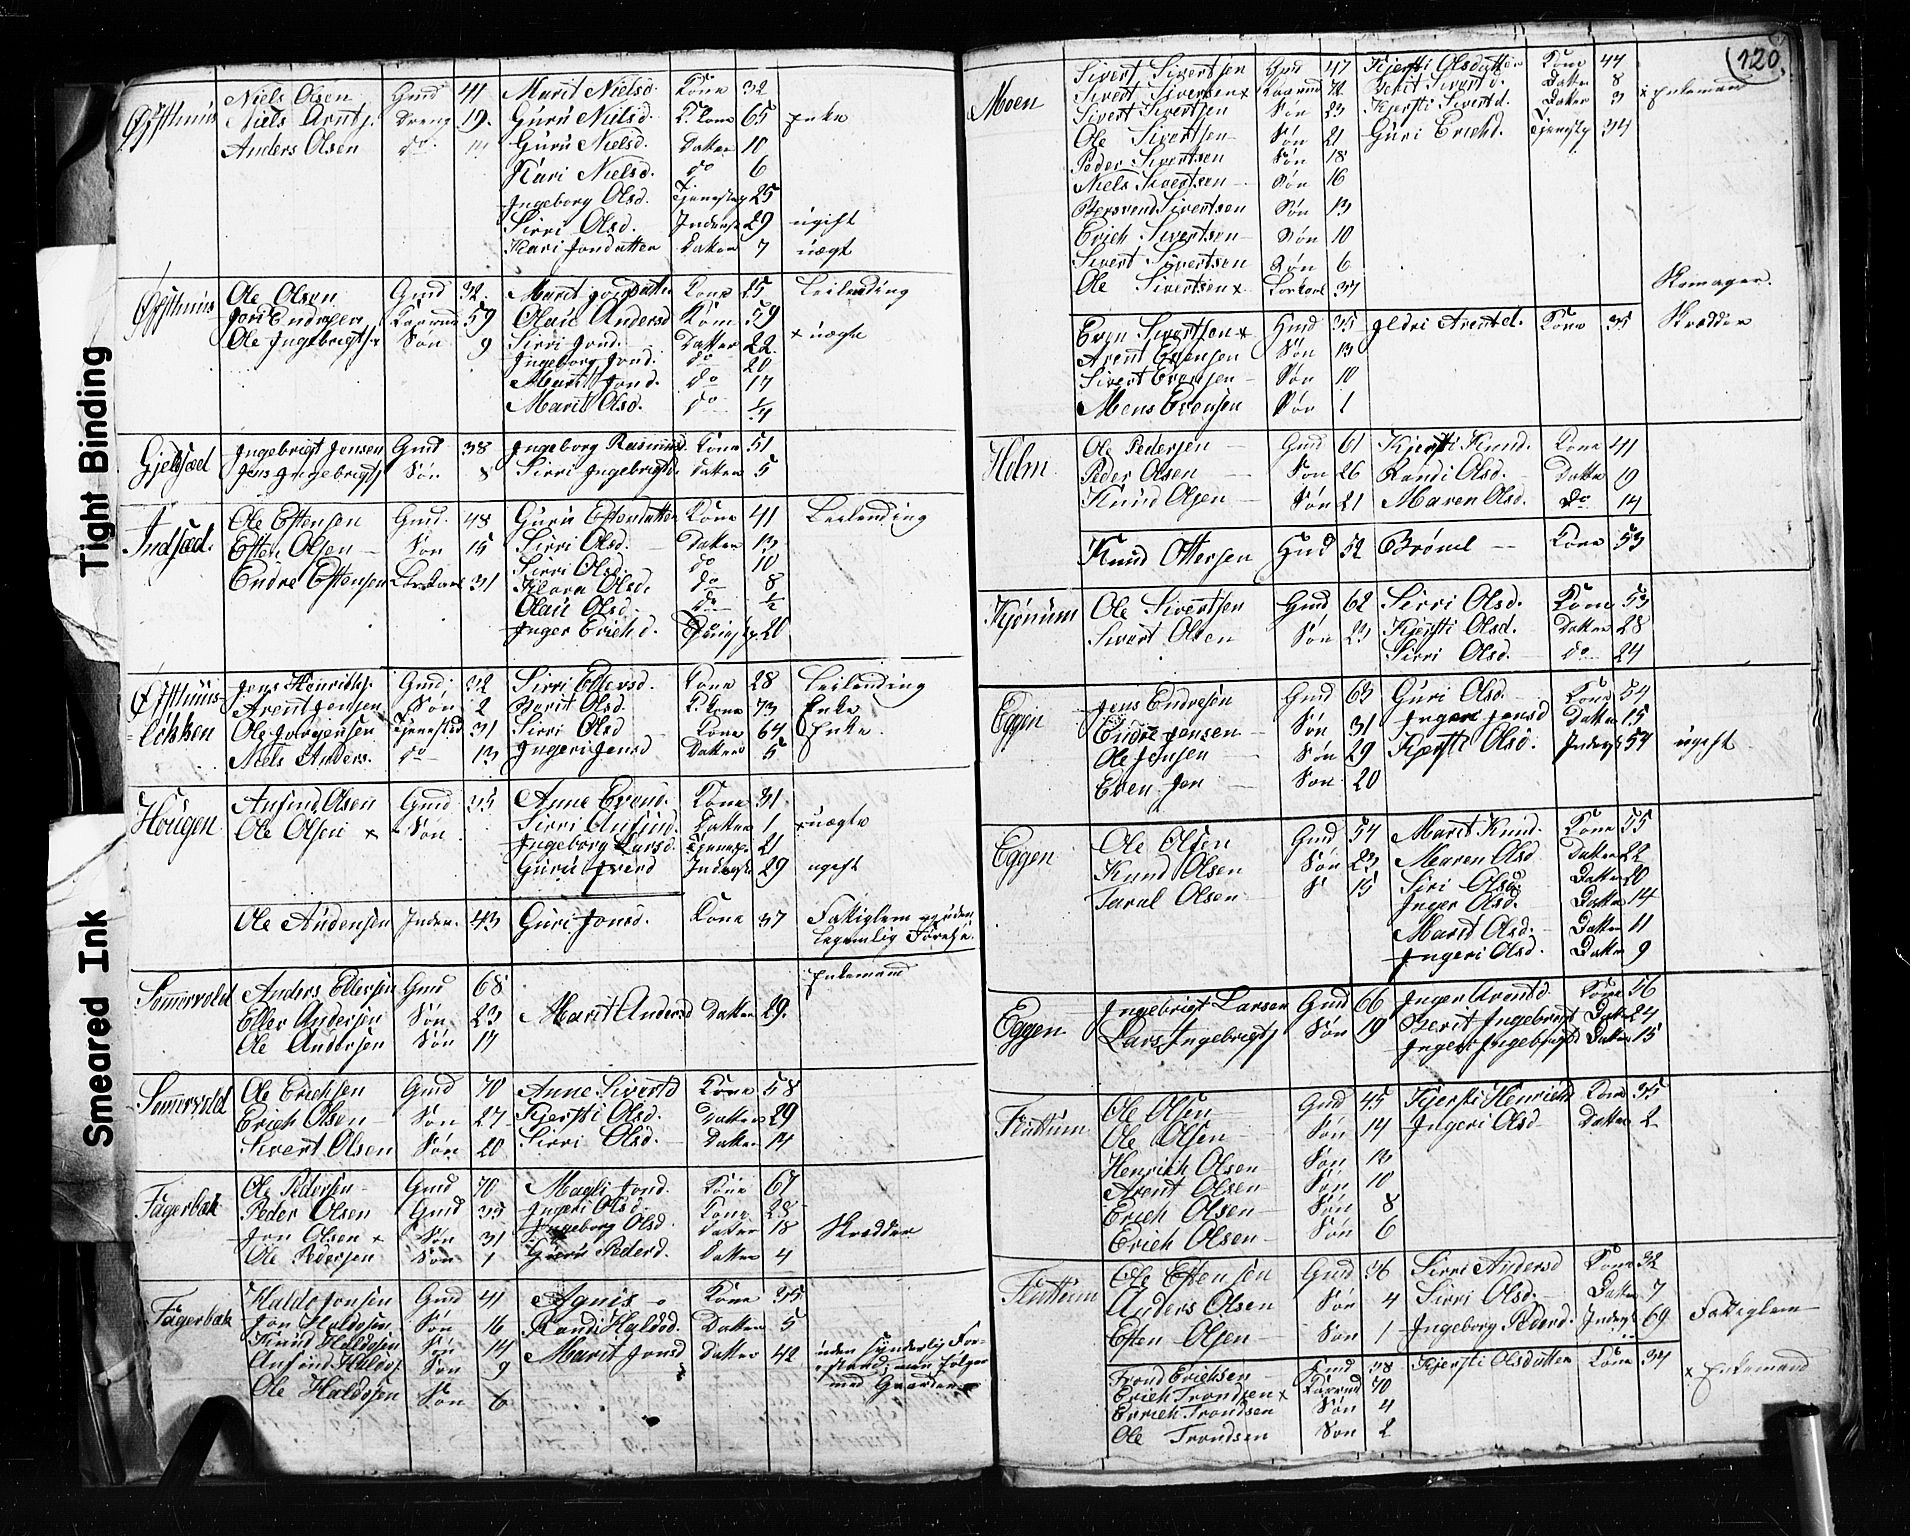 Tight Binding
Smeared Ink
Østhuus Niels Olsen Gmd 41 Marit Nielsd. Kone 32
Niels Arntz. Dreng 19. Guru Nielsd. K. Kone 65 Enke
Anders Olsen do Guru Nielsd. Datter 10
Kari Nielsd. do 6
Ingeborg Olsd. Tjenestep 25
Sirri Olsd. Inderst 29 ugift
Kari Jondatter Datter 7 uægt
Østhuus Ole Olsen Gmd 32. Marit Kone 25 Leilending
Jon Endresen Kaarmd 59 Olau Andersd Kone 59
Ole Ingebrigts. x Søn 9 Sirri Jond. Datter 22. x uægte
Ingeborg Jond. do 20
Marit Jond. do 17
Marit Olsd. do 1/4
Ingebrigt Jensen Gmd 38 Ingeborg Rasmusd. Kone 51
Jens Ingebrigts Søn 8 Sirri Ingebrigtd. Datter 5
Indsæd. Ole Estensen Gmd. 48 Guru Estendatter Kone 41 Leilending
Esten Olsen Søn 15 Sirri Olsd. Datter 13
Sirri Olsd. do 10
Endre Estensen 31 Olsd. do 8
Olau Olsd. do 1/2
Inger Erichd. 20
Østhuus- Jens Henrichs. Gmd 32 Sirri Ellevsd. Kone 28 Leilending
Løkken Arent Jensen Søn 2 Berit Olsd. K. Kone 73 Enke
Ole Jørgensen Tjenested 31 Sirri Olsd Kone 64 Enke.
Niels Anders. do 13 Ingeri Jensd Datter 5
Hougen Anfind Olsen Gmd 35 Anne Evensd. Kone 31.
Ole Olsen x Søn Sirri Anfind. Datter 1 x uægte
Ingeborg Larsd. Tjeneste 21
Guru Iverd Inderste 29 ugift
Ole Andersen Inder. 43 Guri Jonsd. Kone 37 Fattiglem og uden
legemlig Førelse.
Somervold Anders Ellefsen Gmd 68 Enkemand
Ellev Andersen Søn 23 Marit Andersd Datter 29.
Ole Andersen Søn 17
Somervold Ole Erichsen Gmd 70 Anne Sivertd Kone 58
Erich Olsen Søn 27 Kjersti Olsd. Datter 29
Sivert Olsen Søn 20 Sirri Olsd. Datter 14
Fagerbak Ole Pedersen Gmd 70 Magli Jond. Kone 67
Peder Olsen Gmd 35 Ingeri Olsd. Kone 28
Jon Olsen x Søn 31 Ingeborg Olsd. Datter 18 Skrædder
Ole Pedersen Søn 1 Guru Pederd. Datter 4
Fagerbak Haldo Jonsen Gmd 41 Agnis Kone 35
Jon Haldosen Søn 16 Randi Haldod. Datter 5
Knud Haldosen Søn 14 Marit Jonsd Datter 42 uden synderlig For-
Anfind Haldos Søn 9 stand; men følger
Ole Haldosen Søn 6 med Gaarden
120
Moen Sivert Sivertsen Gmd 47 Kjersti Olsdatter Kone 44
Sivert Sivertsen x Kaarmd 72 Berit Sivertd. Datter 8 x Enkemand
Sivert Sivertsen Søn 23 Kjersti Sivertd. Datter 3
Ole Sivertsen Søn 21 Guri Erichd. Tjenestp 34
Peder Sivertsen Søn 18
Niels Sivertsen Søn 16
Bersvend Sivertsen Søn 13
Erich Sivertsen Søn 10
Sivert Sivertsen Søn 6
Ole Sivertsen x 37 Skomager.
Even Sivertsen x Gmd 35 Ildri Arentd. Kone 35 Skrædder
Arent Evensen Søn 13
Sivert Evensen Søn 10
Mons Evensen Søn 1
Holm Ole Pedersen Gmd 61 Kjersti Knud. Kone 41
Peder Olsen Søn 26 Randi Olsd. Datter 19
Knud Olsen Søn 21 Maren Olsd. do 14
Knud Ottersen Gmd 52 Brønel Kone 53
Kjønum Ole Sivertsen Gmd 62 Sirri Olsd. Kone 53
Sivert Olsen Søn 23 Kjersti Olsd. Datter 28
Sirri Olsd. do 24
Eggen Jens Endresen Gmd 63 Guri Olsd. Kone 54
Endre Jensen Søn 31 Ingeri Jensd Datter 15
Ole Jensen Søn 29 Kjersti Olsd. Inderst 54 ugift
Even Jen Søn 20
Eggen Ole Olsen Gmd 54 Marit Knud. Kone 55
Knud Olsen Søn 23 Maren Olsd Datter 22
Taral Olsen S 15 Siri Olsd. Datter 20
Inger Olsd. Datter 14
Marit Olsd. Datter 11
Ingeri Olsd. Datter 9
Eggen Ingebrigt Larsen Gmd 66 Inger Arentd. Kone 56
Lars Ingebrigts Søn 19 Berit Ingebrigtd Datr 24
Ingeri Ingebrigtd Datter 15
Fluttum Ole Olsen Gmd 45 Kjersti Henrichd Kone 35
Ole Olsen Søn 14 Ingeri Olsd Datter 2
Henrich Olsen Søn 13
Arent Olsen Søn 10
Erich Olsen Søn 8
Erich Olsen Søn 6
Fluttum Ole Estensen Gmd 36 Sirri Andersd Kone 32
Anders Olsen Søn 4 Sirri Olsd. Datter 7
Esten Olsen Søn 1 Ingeborg Pederd. Inderst 69 Fattiglem
Trond Erichsen Gmd 38 Kjersti Olsdatter Kone 34
Erich Trondsen x Kaarmd 70 x Enkemand
Errich Trondsen Søn 4
Ole Trondsen Søn 2